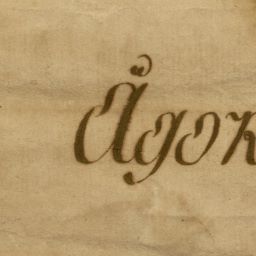 Ågor